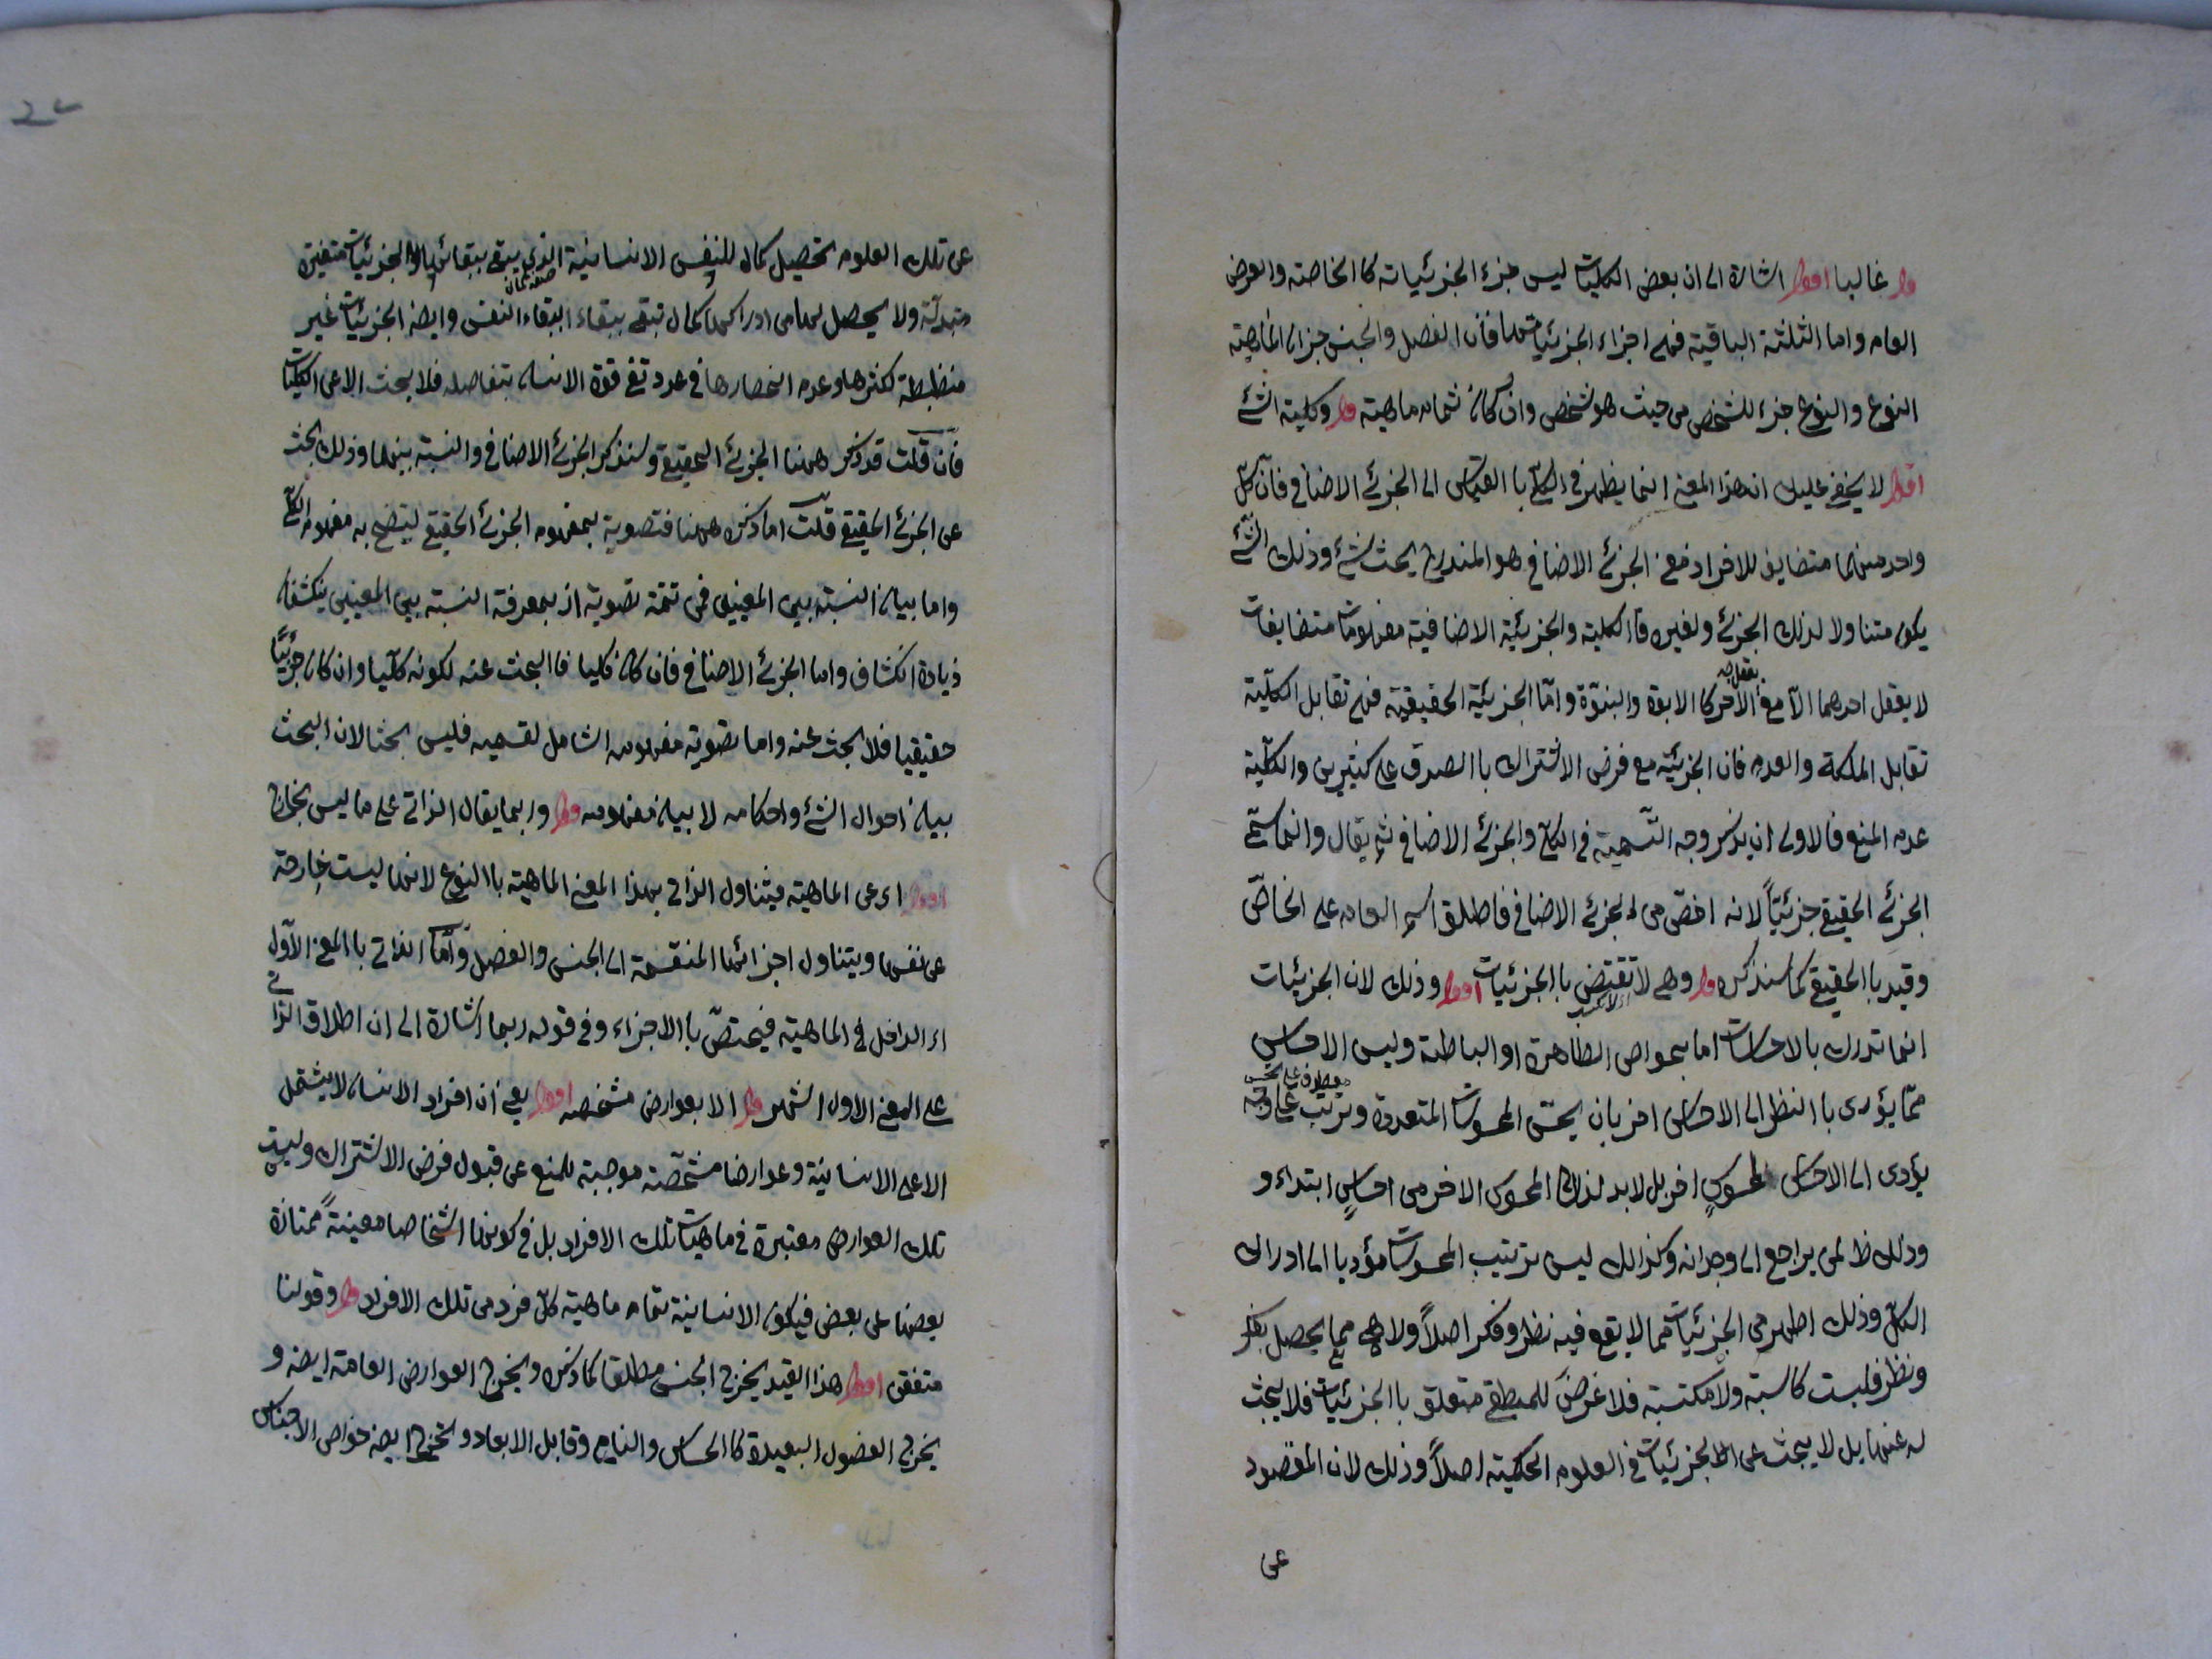 قوله غالبا اقول اشارة الى ان بعض الكليات ليس جزء الجزئياته كا الخاصته والعرض
العام واما الثلثة الباقية فهى اجزاء الجزئياتها فان الفصل والجنس جزان الماهية
النوع والنوع جزء للشخص من حيث هو شخص وان كان تمام ماهيته قوله وكلية الشئ
اقول لا يخفى عليك ان هذا المعنى انما يظهر فى الكلى با القياس الى الجزئى الاضافى فان كل
واحد منهما متضايف للاخر اذ معنى الجزئى الاضافى هو المندرج تحت شئ وذلك الشئ
يكون متناولا لذلك الجزئى ولغيره فا الكلية والجزئية الاضافية مفهومات متضايفات
لا يعقل احدهما الا مع تعقل الاخر كا الابوة والبنوة واما الجزئية الحقيقية فهى تقابل الكلية
تقابل الملكة والعدم فان الجزئية مع فرض الاشتراك با الصدق على كثيرين والكلية
عدم المنع فالاولى ان يذكر وجه التسمية فى الكلى والجزئى الاضافى ثم يقال وانما سمى
الجزئى الحقيقى جزئيا لانه اخص من الجزئى الاضافى فاطلق اسم العام على الخاص
وقيد با الحقيقى كما سنذكره قوله وهى لا تقتنص با الجزئيات اقول وذلك لان الجزئيات
انما تدرك بالاحساسات اما بحواس الظاهرة او الباطنة وليس الاحساس
مما يؤدى با النظر الى الاحساس اخر بان يحس المحسوسات المتعددة وترتب على وجه
يؤدى الى الاحساس المحسوس اخر بل لا بد لذلك المحسوس الاخر من احساس ابتداء و
وذلك ظ لمن يراجع الى وجدانه وكذالك ليس ترتيب المحسوسات مؤديا الى ادراك
الكلى وذلك اظهر من الجزئيات مما لا يقع فيه نظر وفكر اصلا ولا هى مما يحصل بفكر
ونظر فليست كاسبة ولا مكتسبة فلا غرض للمنطقى متعلق با الجزئيات فلا يبحث
له عنها بل لا يبحث عن الجزئيات فى العلوم الحكمية اصلا وذلك لان المقصود
عن
عن تلك العلوم تحصيل كمال للنفس الانسانية الذى يبقى ببقائها والجزئيات متغيرة
متبدلة ولا يحصل لها من ادراكها كمال تبقى ببقاء النفس وايضا الجزئيات غير
منظبطة لكثرها وعدم انحصارها فى عدد تفى قوة الانسان بتفاصله فلا يبحث الا عن الكليات
فان قلت قد ذكر ههنا الجزئى الحقيقى وسنذكر الجزئى الاضافى والنسبة بينهما وذلك بحث
عن الجزئى الحقيقى قلت اما ذكره ههنا فتصوير بمفهوم الجزئى الحقيقى ليتضح به مفهوم الكلى
واما بيان النسبة بين المعنيين فمن تتمة تصويره اذ بمعرفة النسبة بين المعنيين ينكشفان
زيادة انكشاف واما الجزئى الاضافى فان كان كليا فا البحث عنه لكونه كليا وان كان جزئيا
حقيقيا فلا بحث عنه واما تصوير مفهومه الشامل لقسميه فليس بحثا لان البحث
بيان احوال الشئ واحكامه لا بيان مفهومه قوله وربما يقال الذاتى على ما ليس بخارج
اقول اى عن الماهية فيتناول الذاتى بهذا المعنى الماهية با النوع لانها ليست خارجة
عن نفسها ويتناول اجزائها المنقسمة الى الجنس والفصل واما الذاتى با المعنى الاول
اى الداخل فى الماهية فيختص با الاجزاء وفى قوله ربما اشارة الى ان اطلاق الذاتى
على المعنى الاول اشهر قوله الا بعوارض مشخصه اقول يعنى ان افراد الانسان لا يشتمل
الا على الانسانية وعوارضا مشخصة موجبة للمنع عن قبول فرض الاشتراك وليست
تلك العوارض معتبرة فى ماهيات تلك الافراد بل فى كونها اشخاصا معينة ممتازة
بعضها على بعض فيكون الانسانية تمام ماهية كل فرد من تلك الافراد قوله وقولنا
متفقين اقول هذا القيد يخرج الجنس مطلقا كما ذكره ويخرج العوارض العامة ايضا و
يخرج الفصول البعيدة كا الحساس والنامى وقابل الابعاد ويخرج ايضا خواص الاجناس